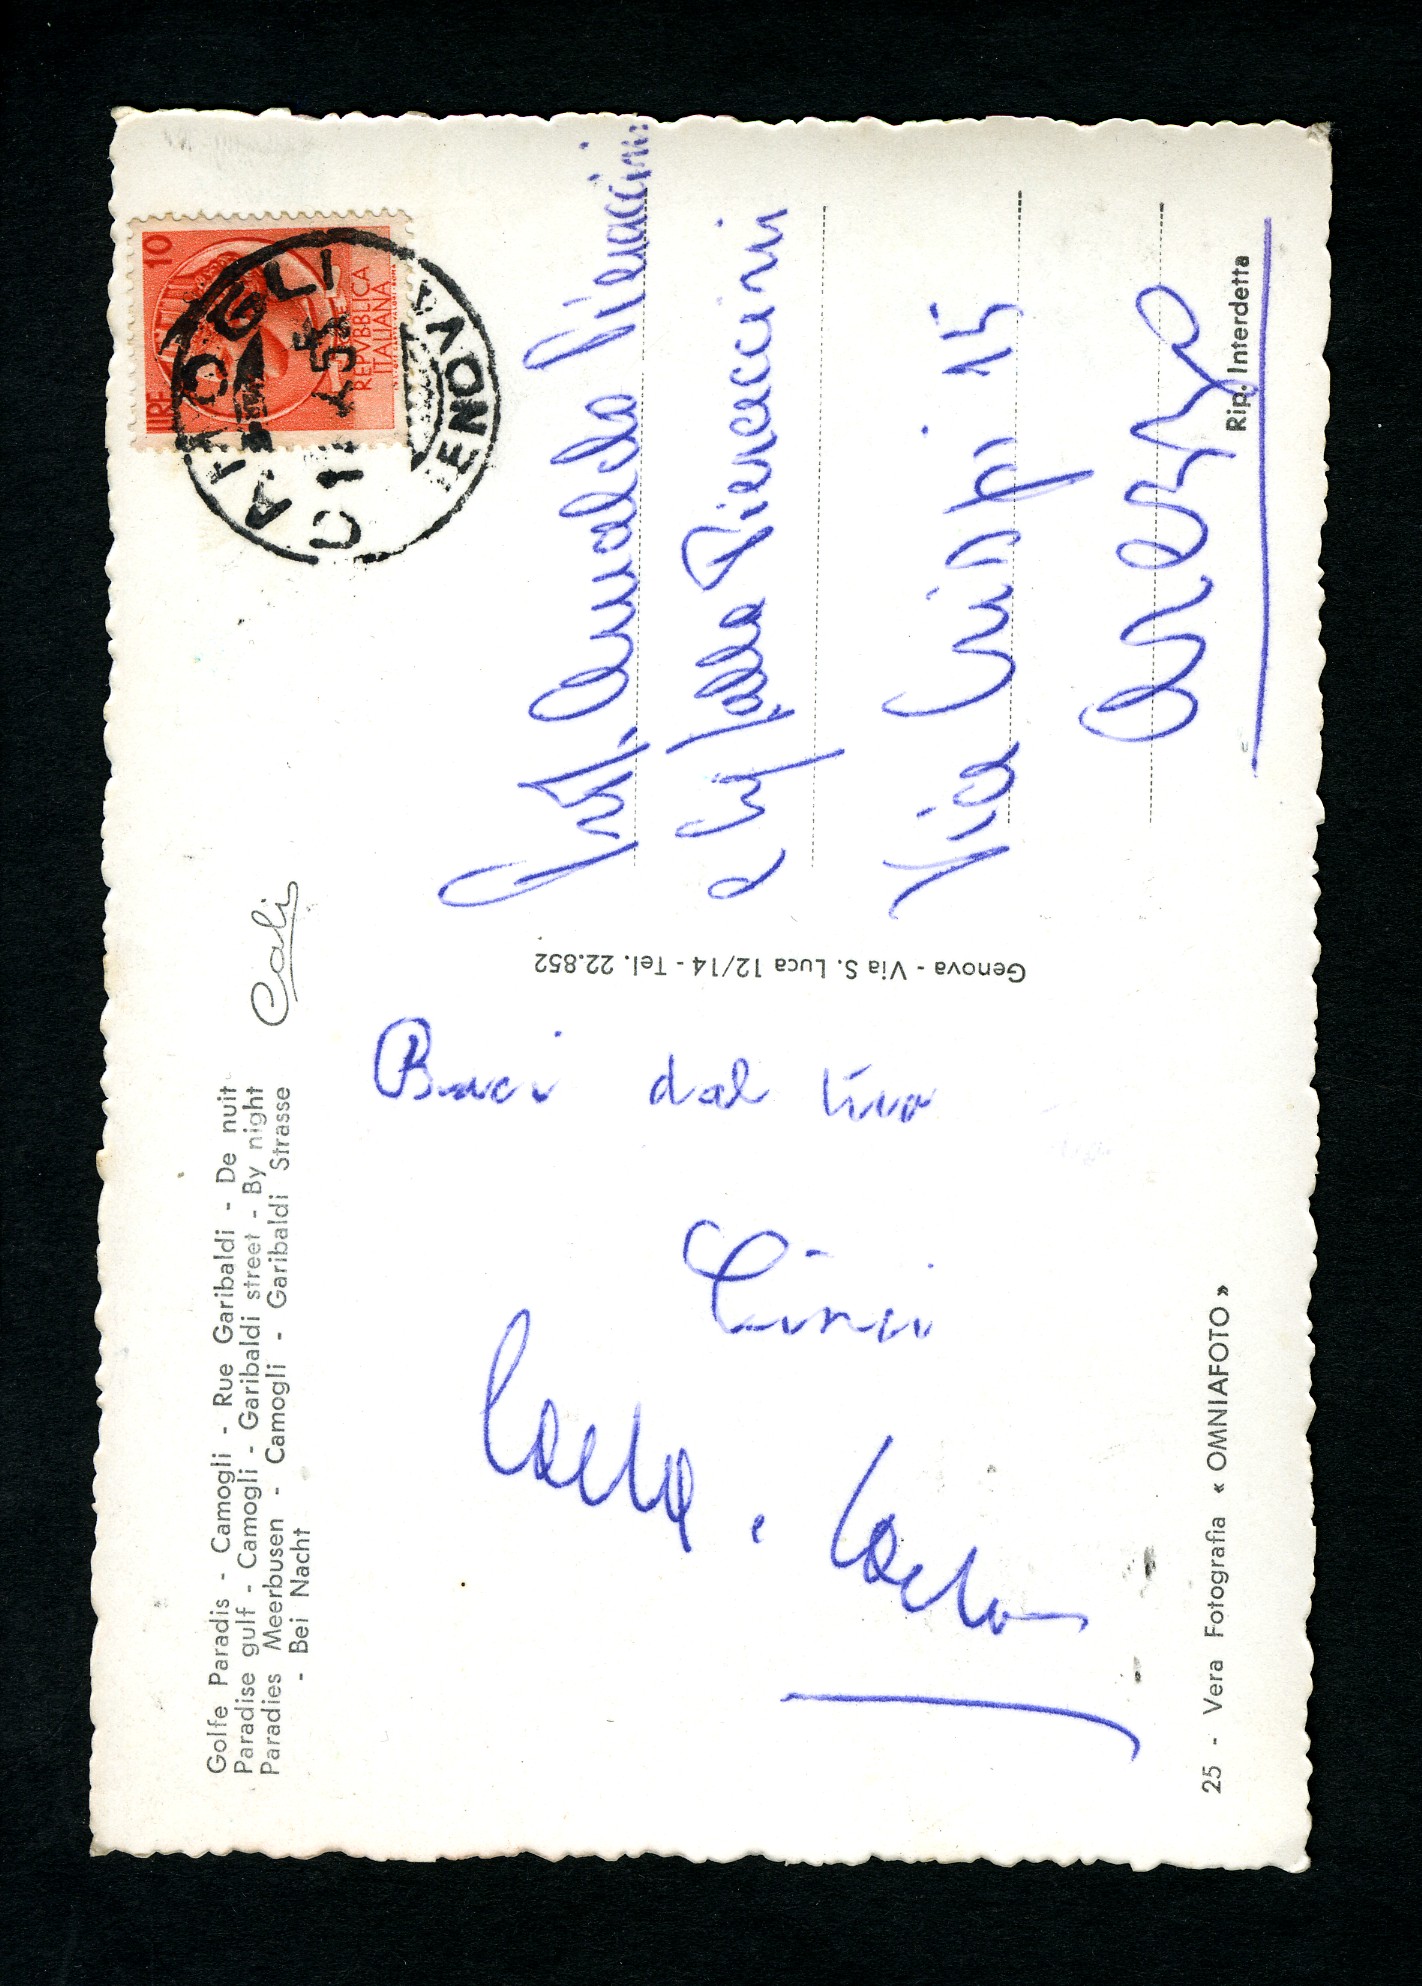 Golfe Paradis - Camogli - Rue Garibaldi - De nuit
Paradise gulf - Camogli - Garibaldi street - By night
Paradies Meerbusen - Camogli - Garibaldi Strasse
- Bei Nacht
Cali
Baci dal tuo
25 - Vera Fotografia « OMNIAFOTO »
Genova - Via S. Luca 12/14 - Tel. 22.852
LIRE 10
REPVBBLICA
ITALIANA
CAMOGLI
GENOVA
Pieraccini
e Pieraccini
Via Crispi 15
Arezzo
Rip. Interdetta